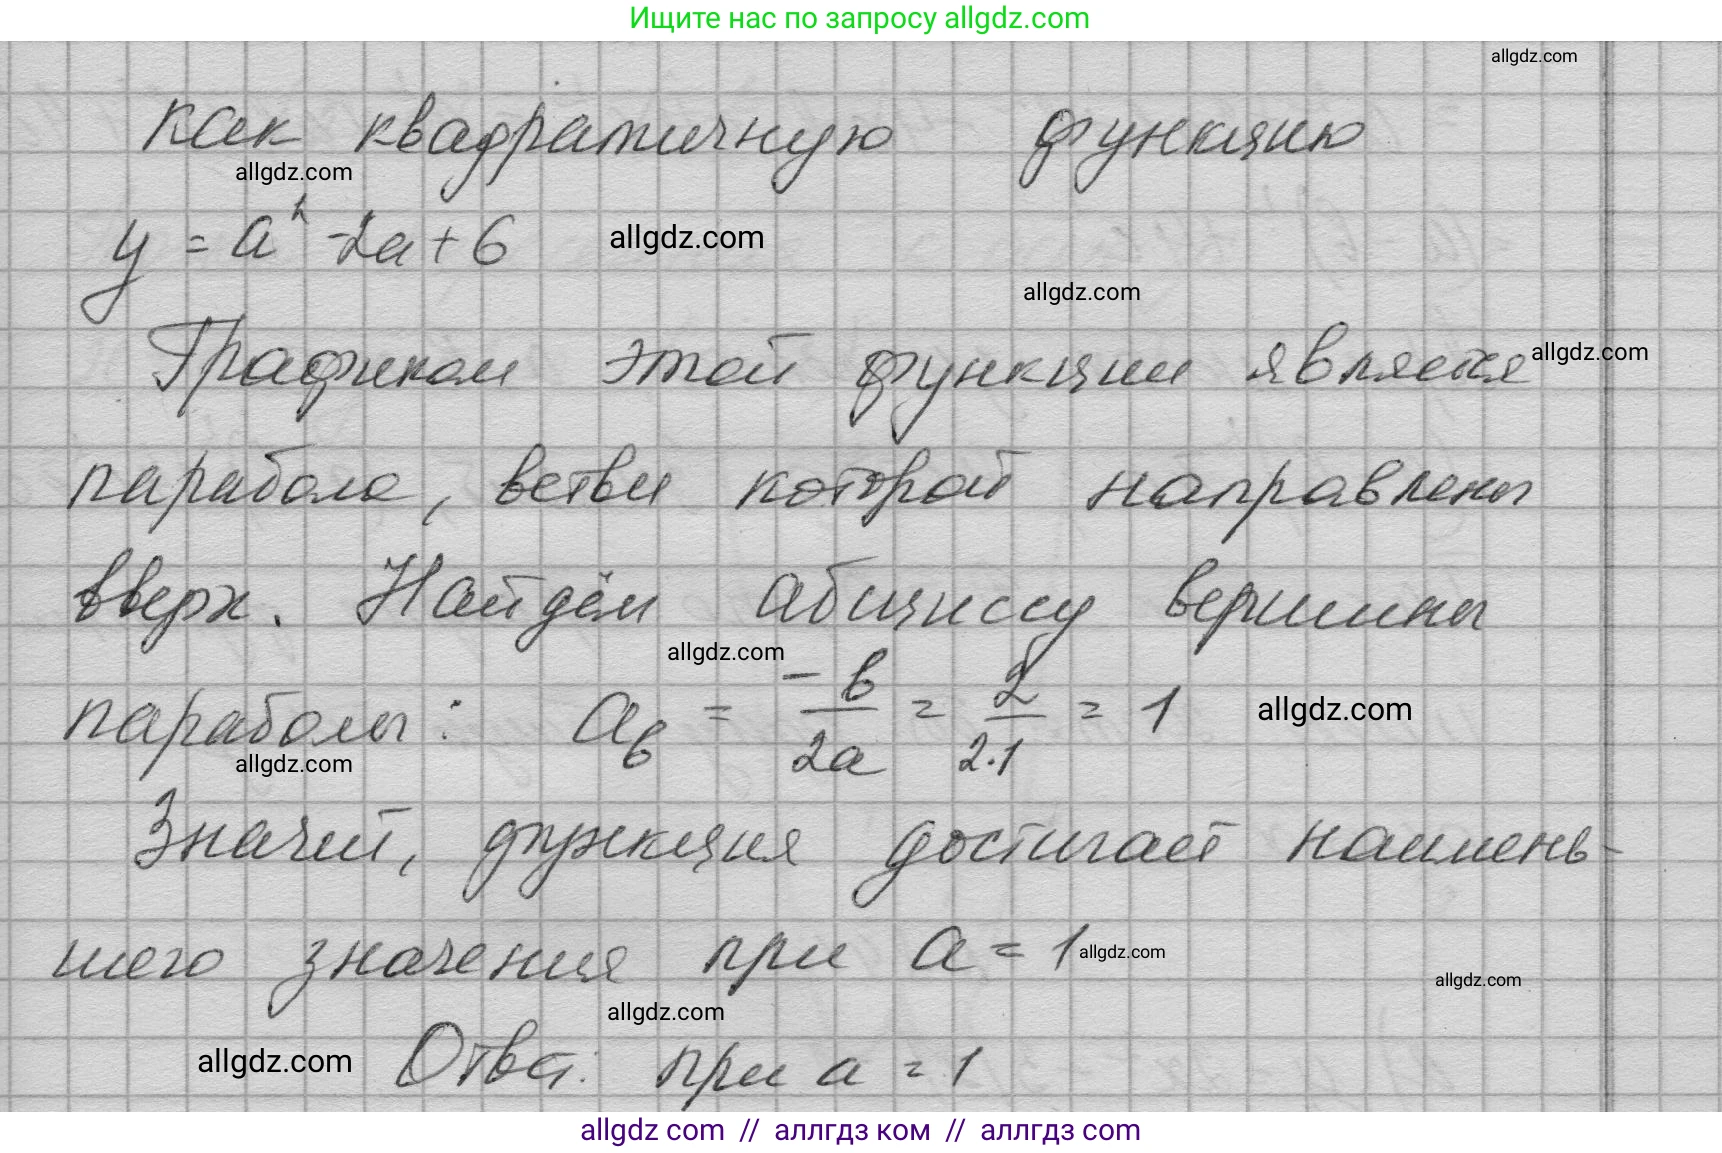 Ищите нас по запросу allgdz.com
allgdz.com
как квадратичную функцию
allgdz.com
y = a² - 2a + 6 allgdz.com
allgdz.com
Графиком этой функции является allgdz.com
парабола, ветви которой направлены
вверх. Найдём абциссу вершины
allgdz.com
параболы: aв = -b/2a = 2/2·1 = 1 allgdz.com
allgdz.com
Значит, функция достигает наимень-
шего значения при a = 1 allgdz.com
allgdz.com
allgdz.com
allgdz.com Ответ: при a = 1
allgdz com // аллгдз ком // аллгдз com